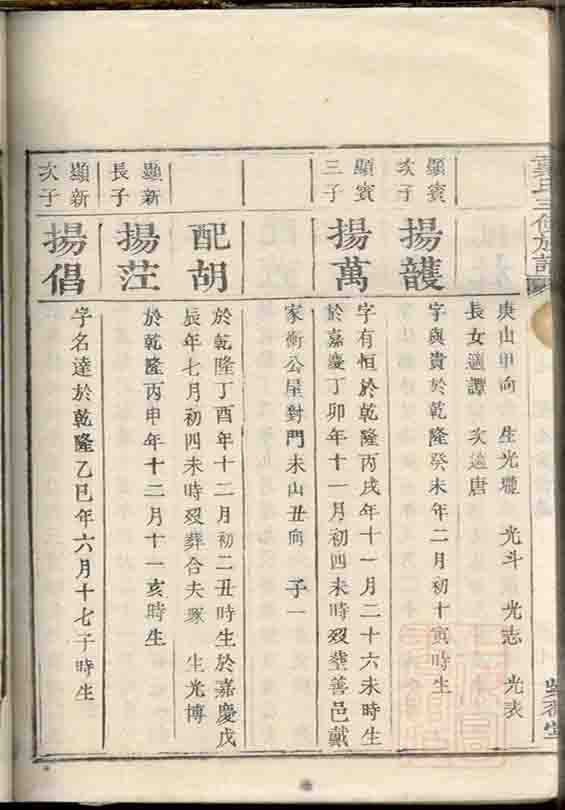 庚山甲向 生光瓏 光斗 光志 光表
長女適譚 次適唐
顯賓
次子
揚
字與貴於乾隆癸未年二月初十寅時生
顯賓
三子
揚萬
字有恒於乾隆丙戌年十一月二十六未時生
於嘉慶丁卯年十一月初四未時歿塟善邑戴
家衝公屋對門未山丑向 子一
配胡
於乾隆丁酉年十二月初二丑時生於嘉慶戊
辰年七月初四未時歿葬合夫塚 生光博
顯新
長子
揚茳
於乾隆丙申年十二月十一亥時生
顯新
次子
揚倡
字名達於乾隆乙巳年六月十七子時生